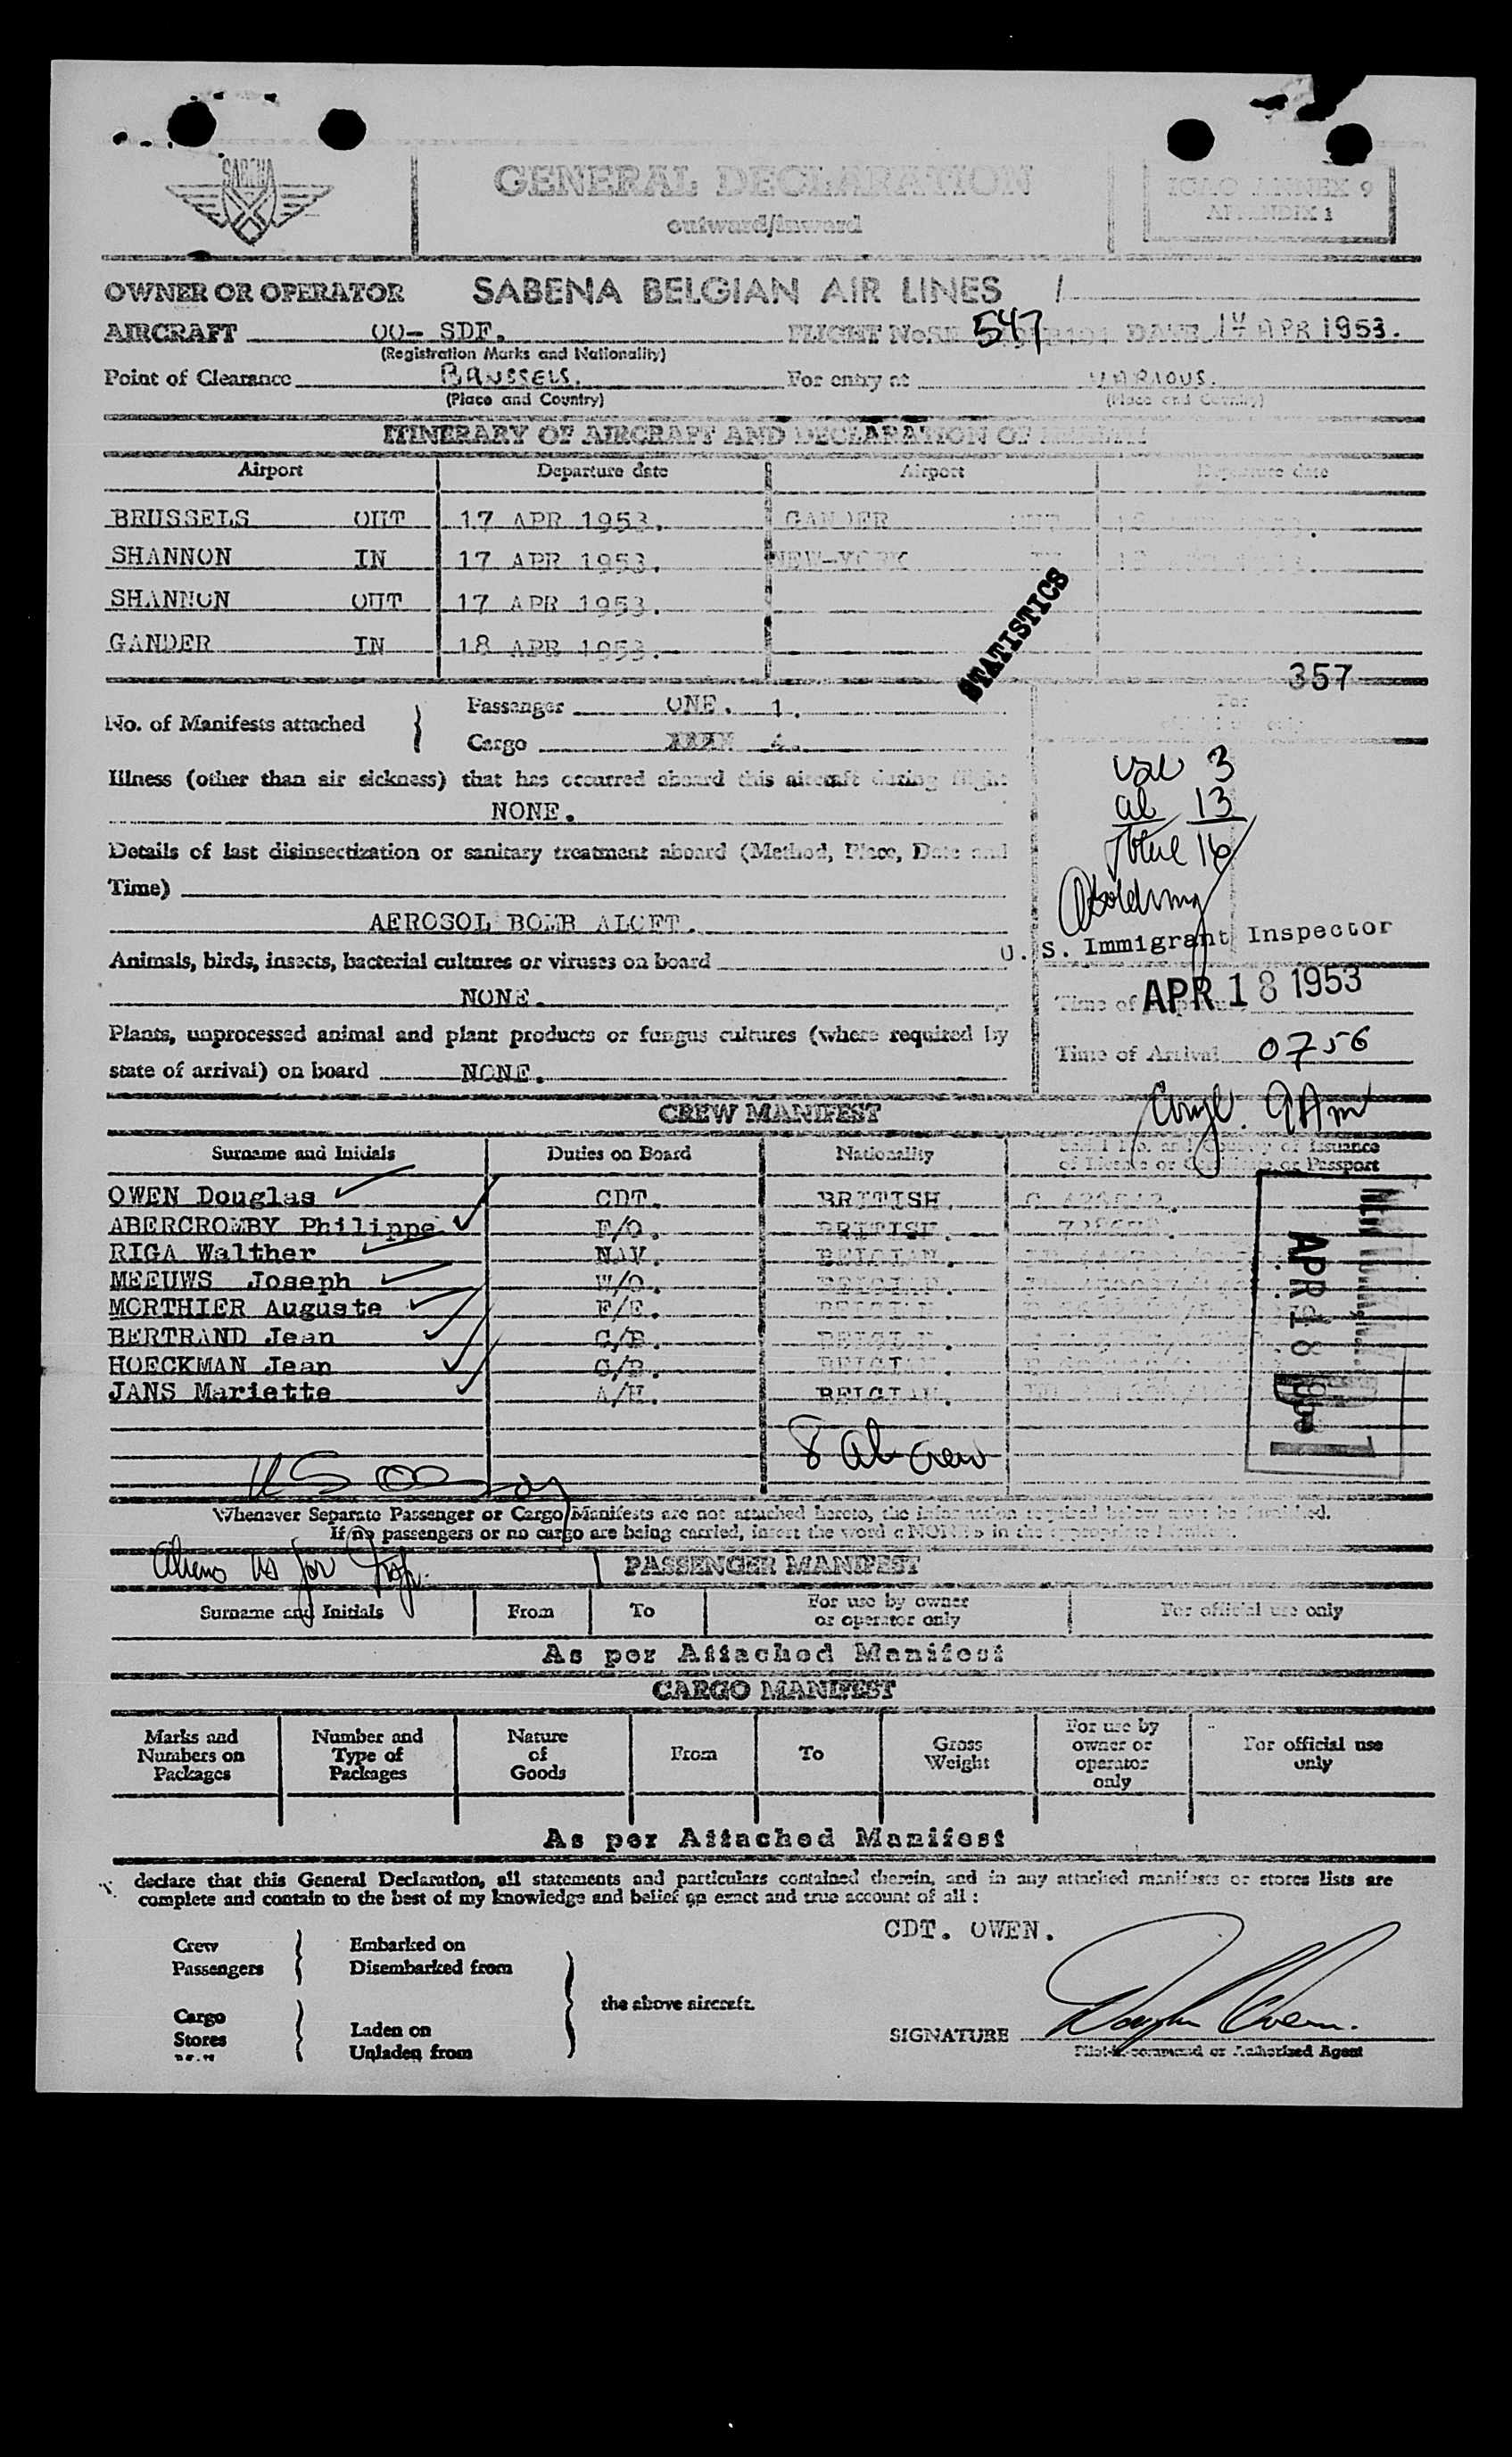 SABENA
GENERAL DECLARATION
outward/inward
ICAO ANNEX 9
APPENDIX 1
OWNER OR OPERATOR SABENA BELGIAN AIR LINES /
AIRCRAFT OO- SDF. FLIGHT No 547 DATE APR 1953.
(Registration Marks and Nationality)
Point of Clearance BRUSSELS. For entry at VARIOUS.
(Place and Country) (Place and Country)
ITINERARY OF AIRCRAFT AND DECLARATION OF HEALTH
Airport Departure date Airport Departure date
BRUSSELS OUT 17 APR 1953. GANDER OUT
SHANNON IN 17 APR 1953. NEW-YORK IN
SHANNON OUT 17 APR 1953.
GANDER IN 18 APR 1953.-
STATISTICS
357
No. of Manifests attached
Passenger ONE. 1.
Cargo 4.
For
official use only
Illness (other than air sickness) that has occurred aboard this aircraft during flight
NONE.
Details of last disinsectization or sanitary treatment aboard (Method, Place, Date and
Time)
AEROSOL BOMB ALOFT.
Animals, birds, insects, bacterial cultures or viruses on board
NONE.
Plants, unprocessed animal and plant products or fungus cultures (where required by
state of arrival) on board NONE.
usc 3
al 13
Total 16
U. S. Immigrant Inspector
Time of APR 18 1953
Time of Arrival 0756
CREW MANIFEST
Surname and Initials Duties on Board Nationality Serial No. and Country of Issuance
of Licence or Certificate or Passport
OWEN Douglas CDT. BRITISH.
ABERCROMBY Philippe F/O. BRITISH.
RIGA Walther NAV. BELGIAN.
MEEUWS Joseph W/O. BELGIAN.
MORTHIER Auguste F/E. BELGIAN.
BERTRAND Jean C/B. BELGIAN.
HOECKMAN Jean C/B. BELGIAN.
JANS Mariette A/H. BELGIAN.
APR 18
8 al crew
Whenever Separate Passenger or Cargo Manifests are not attached hereto, the information required below must be furnished.
If no passengers or no cargo are being carried, insert the word «NONE» in the appropriate Manifest.
PASSENGER MANIFEST
Surname and Initials From To For use by owner
or operator only For official use only
As per Attached Manifest
CARGO MANIFEST
Marks and
Numbers on
Packages Number and
Type of
Packages Nature
of
Goods From To Gross
Weight For use by
owner or
operator
only For official use
only
As per Attached Manifest
declare that this General Declaration, all statements and particulars contained therein, and in any attached manifests or stores lists are
complete and contain to the best of my knowledge and belief an exact and true account of all :
CDT. OWEN.
Crew Embarked on
Passengers Disembarked from
the above aircraft.
Cargo Laden on
Stores Unladen from
SIGNATURE Douglas Owen.
Pilot-in-command or Authorized Agent